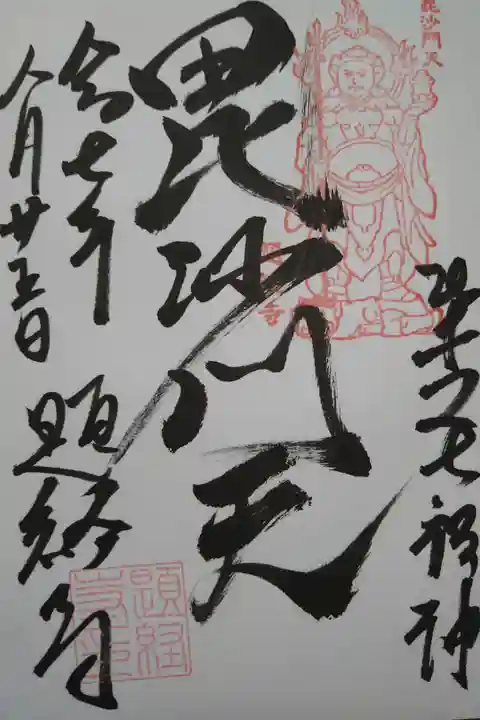 毘沙門天
柴又七福神
毘沙門天
令七年
八月廿五日
題経寺